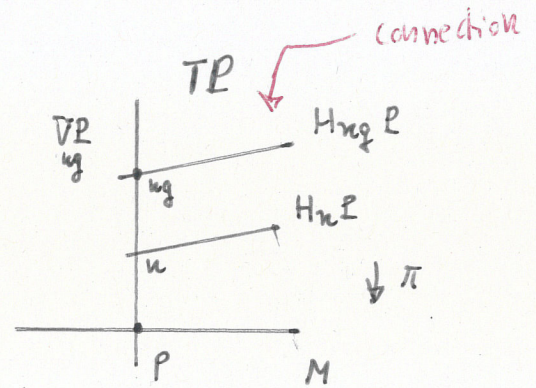 connection
TP
VP
ug
HugP
ug
HuP
u
π
P
M